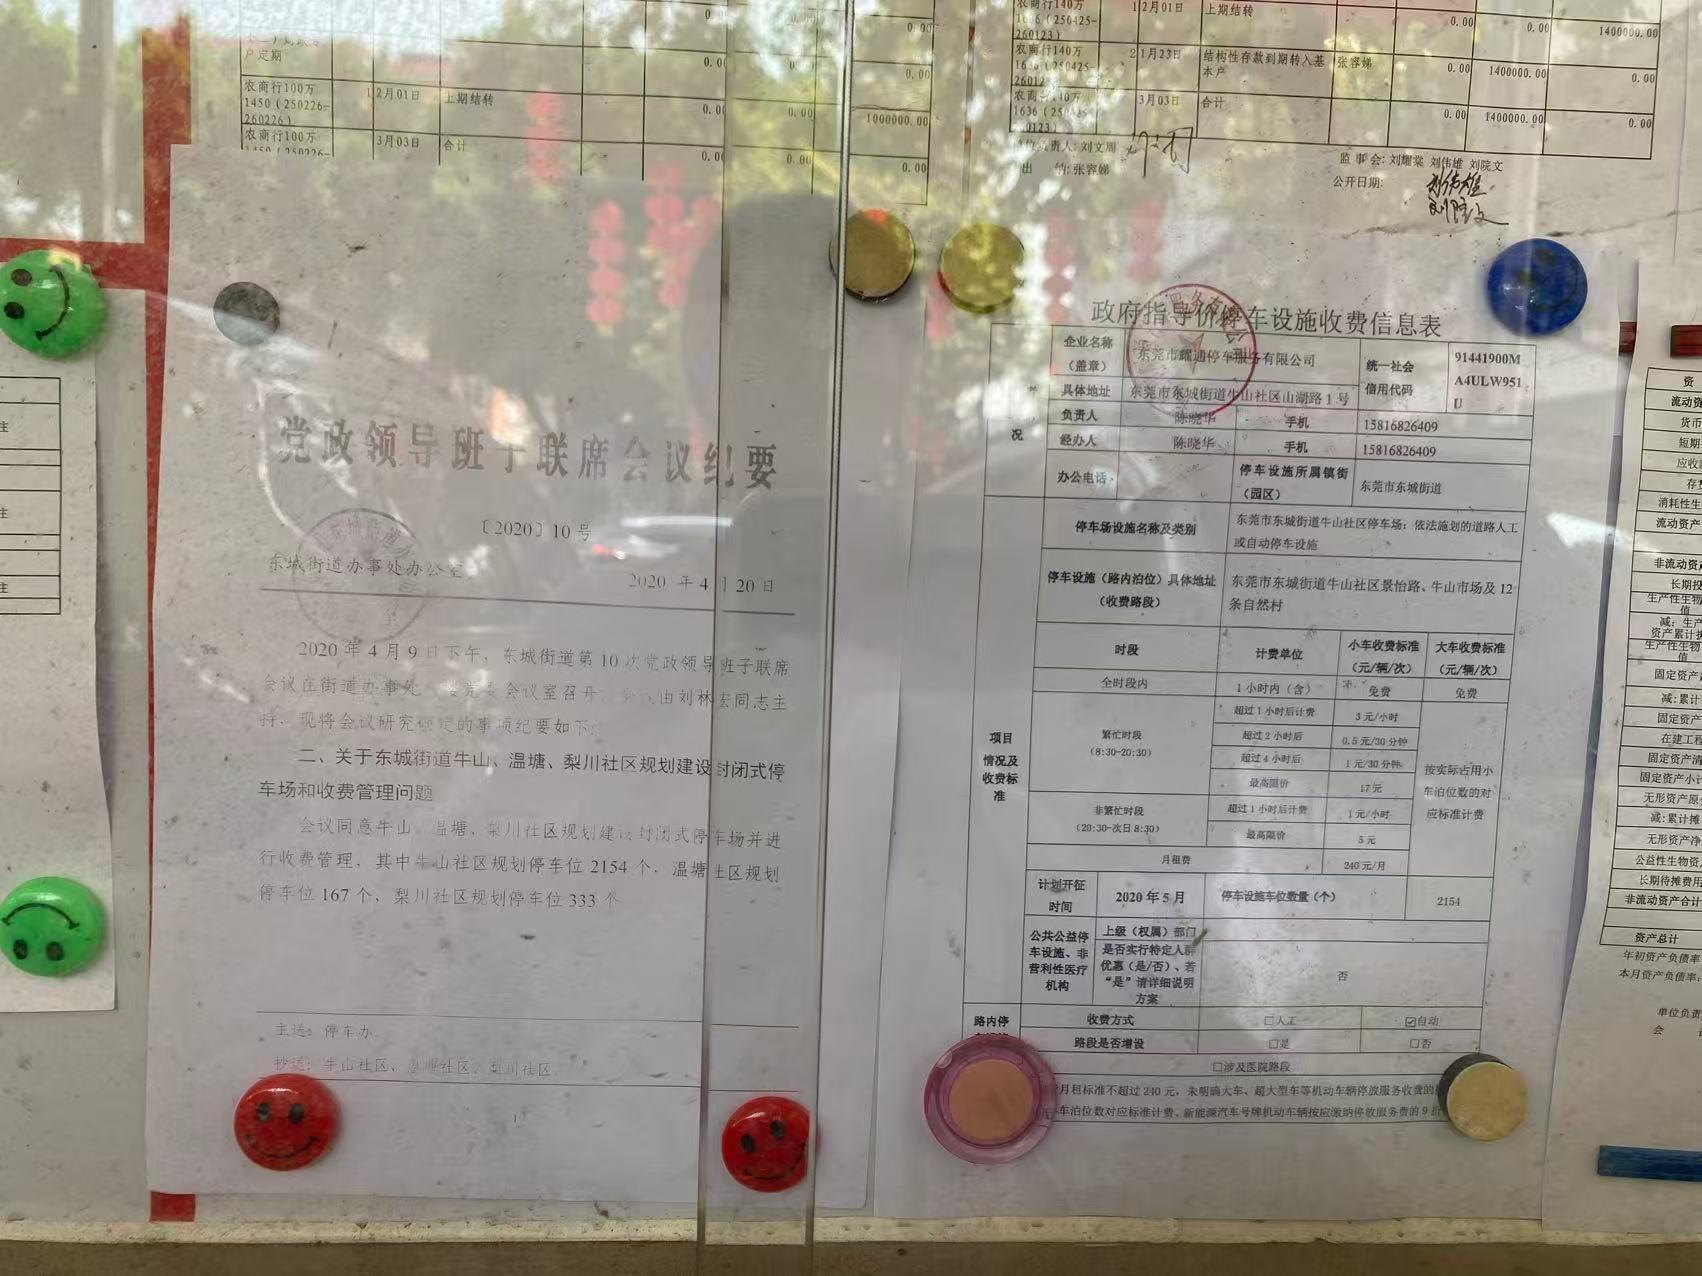 户定期
0.00
0.00
0.00
农商行100万
1450（250226-
260226）
12月01日
上期结转
0.00
0.00
1000000.00
农商行100万
3月03日
合计
0.00
0.00
0.00
农商行140万
1636（250425-
260123）
12月01日
上期结转
0.00
0.00
1400000.00
农商行140万
21月23日
结构性存款到期转入基
本户
张容娣
0.00
1400000.00
0.00
1636（
3月03日
合计
0.00
1400000.00
0.00
负责人: 刘文周
出 纳: 张容娣
监 事 会: 刘耀棠 刘伟雄 刘院文
公开日期:
刘伟雄
刘院文
党政领导班子联席会议纪要
〔2020〕10 号
东城街道办事处办公室
2020 年 4 月 20 日
2020 年 4 月 9 日下午，东城街道第 10 次党政领导班子联席
会议在街道办事处 党委会议室召开， 由刘林宏同志主
持，现将会议研究 定的事项纪要如下:
二、关于东城街道牛山、温塘、梨川社区规划建设封闭式停
车场和收费管理问题
会议同意牛山、温塘、梨川社区规划建设封闭式停车场并进
行收费管理，其中牛山社区规划停车位 2154 个，温塘社区规划
停车位 167 个，梨川社区规划停车位 333 个
主送：停车办.
抄送：牛山社区、温塘社区、梨川社区.
1
政府指导价停车设施收费信息表
况
企业名称
（盖章）
东莞市耀通停车服务有限公司
统一社会
信用代码
91441900M
A4ULW951
U
具体地址
东莞市东城街道牛山社区山湖路 1 号
负责人
陈晓华
手机
15816826409
经办人
陈晓华
手机
15816826409
办公电话
停车设施所属镇街
（园区）
东莞市东城街道
项目
情况及
收费标
准
停车场设施名称及类别
东莞市东城街道牛山社区停车场：依法施划的道路人工
或自动停车设施
停车设施（路内泊位）具体地址
（收费路段）
东莞市东城街道牛山社区景怡路、牛山市场及 12
条自然村
时段
计费单位
小车收费标准
（元/辆/次）
大车收费标准
（元/辆/次）
全时段内
1 小时内（含）
免费
免费
繁忙时段
（8:30-20:30）
超过 1 小时后计费
3 元/小时
超过 2 小时后
0.5 元/30 分钟
超过 4 小时后
1 元/30 分钟
最高限价
17 元
按实际占用小
车泊位数的对
应标准计费
非繁忙时段
（20:30-次日 8:30）
超过 1 小时后计费
1 元/小时
最高限价
5 元
月租费
240 元/月
计划开征
时间
2020 年 5 月
停车设施车位数量（个）
2154
公共公益停
车设施、非
营利性医疗
机构
上级（权属）部门
是否实行特定人群
优惠（是/否）、若
“是”请详细说明
方案
否
路内停
收费方式
□人工
☑自动
路段是否增设
□是
□否
□涉及医院路段
月租标准不超过 240 元，未明确大车、超大型车等机动车辆停放服务收费的
车泊位数对应标准计费、新能源汽车号牌机动车辆按应缴纳停放服务费的 9 折
主
主
主
资
流动资
货币
短期
应收
存货
消耗性生
流动资产
非流动资产
长期投
生产性生物
值
减：生产
资产累计折
生产性生物
值
固定资产
减:累计
固定资产
在建工程
固定资产清
固定资产小计
无形资产原
减:累计摊
无形资产净
公益性生物资
长期待摊费用
非流动资产合计
资产总计
年初资产负债率
本月资产负债率:
单位负责
会 计